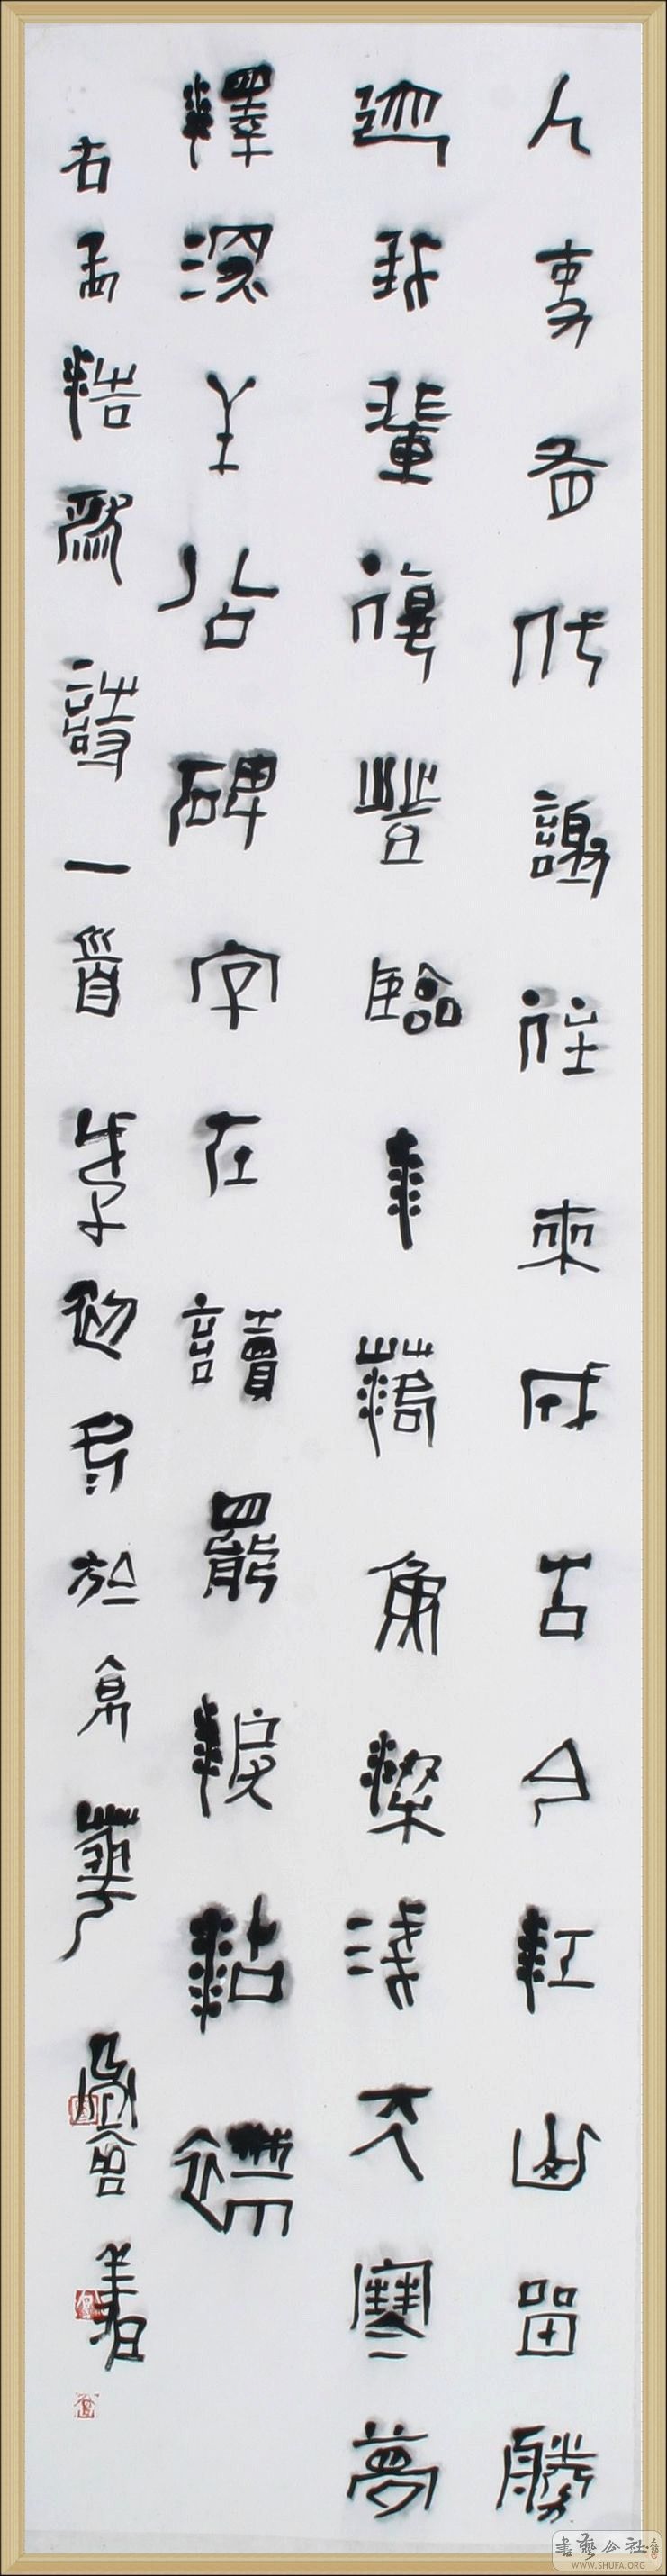 人事有代謝往來成古今江山留勝
迹我輩復登臨水落魚梁淺天寒夢
澤深羊公碑字在讀罷淚沾襟
右孟浩然詩一首於京華書
書藝公社
WWW.SHUFA.ORG